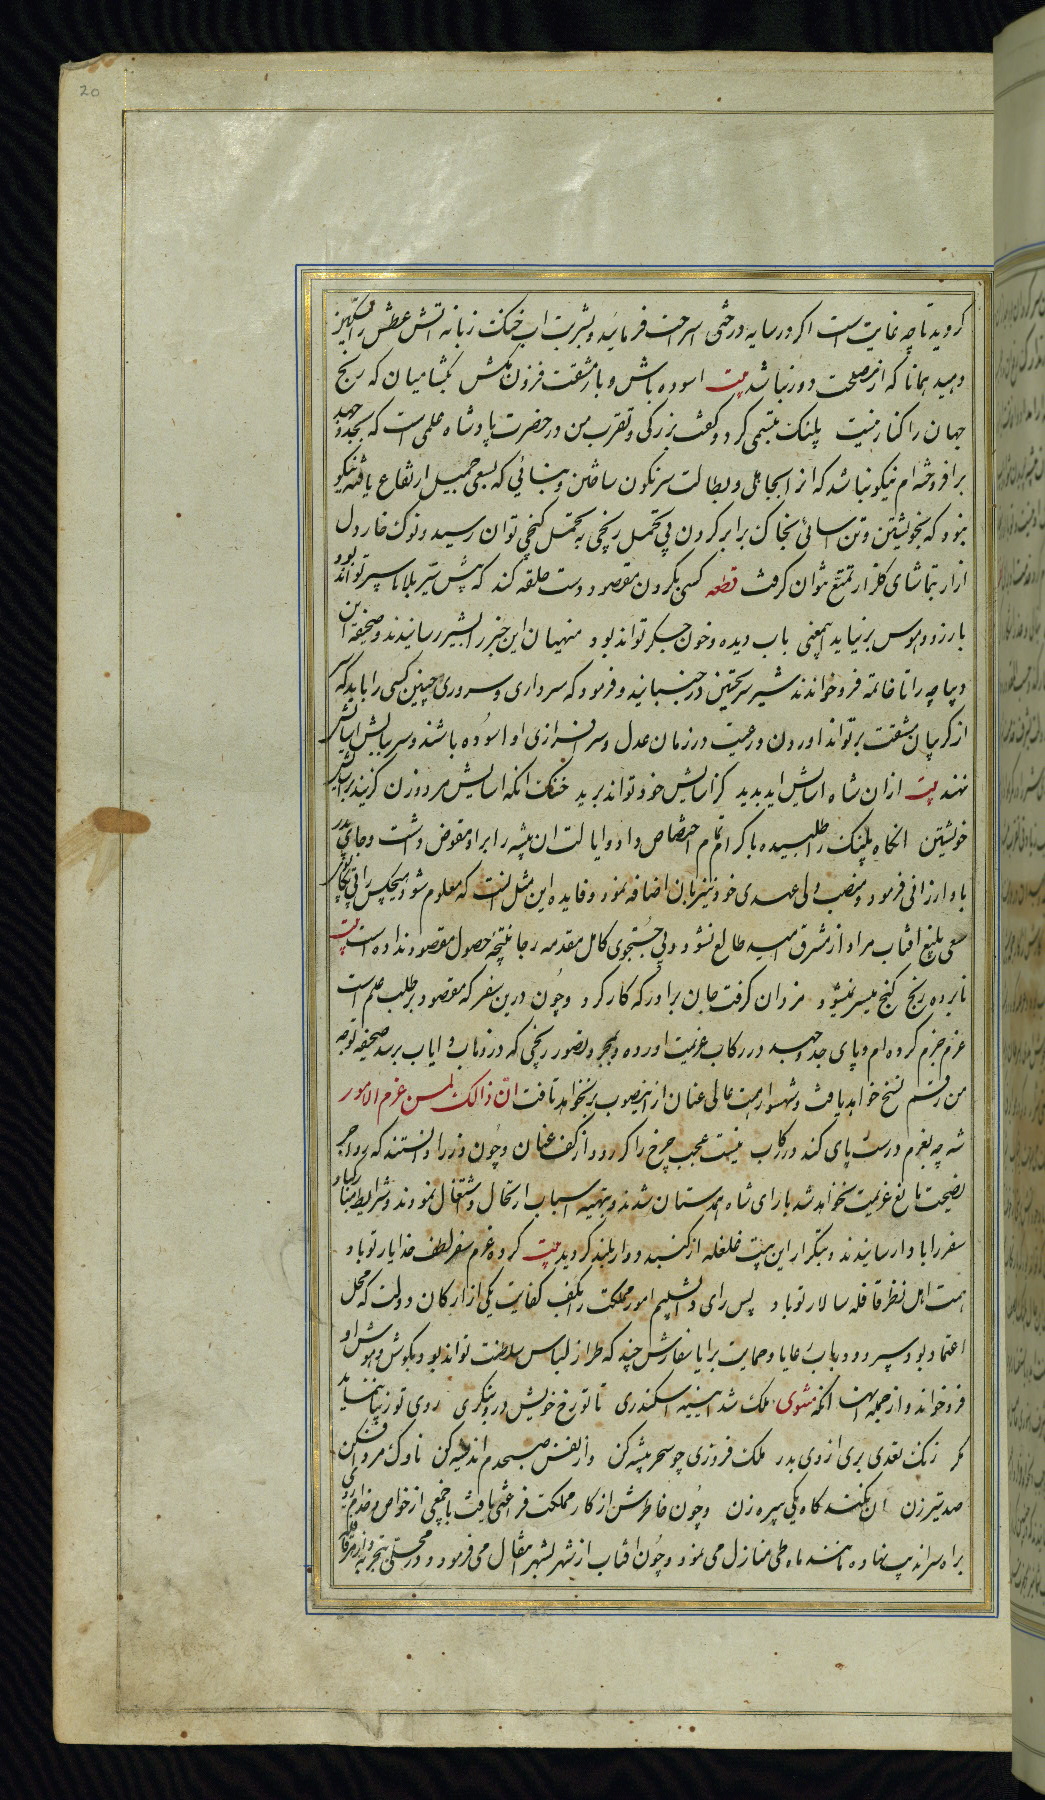 20
کردید تا چه غایت است اکر در سایه درختی استراحت فرمائید و بشربت اب خنک زبانه اتش عطش را تسکین
دهید همانا که از مصلحت دور نباشد بیت اسوده باش و بار مشقت فزون مکش بکشا میان که رنج
جهان را کنار نیست پلنک تبسمی کرد و کفت بزرکی و تقرب من در حضرت پادشاه علمی است که بجد و جهد
برافروخته ام نیکو نباشد که انرا بکاهلی و بطالت سرنکون ساختن و بنائی که بسعی جمیل ارتفاع یافته نیکو
نبود که بخویشتن و تن اسائی بخاک برابر کردن بی تحمل رنجی به تحمل کنجی توان رسید و نوک خار دل
ازار بتماشای کلزار تمتع نتوان کرفت قطعه کسی بکردن مقصود دست حلقه کند که پیش تیر بلاها سپر تواند بود
بارزو و هوس برنیاید این معنی باب دیده و خون جکر تواند بود منهیان این خبر را بشیر رسانیدند و صحیفه این
دیباچه را تا خاتمه فروخواندند شیر سر تحسین در جنبانید و فرمود که سرداری و سروری چنین کسی را باید که سر
از کریبان مشقت بر تواند اورد و رعیت در زمان عدل و سرافرازی او اسوده باشند و سر ببالش اسایش
نهند بیت ازان شاه اسایش اید پدید کز اسایش خود تواند برید خنک انکه اسایش مرد و زن کزیند بر اسایش
خویشتن انکاه پلنک را طلبیده باکرام تمام اختصاص داد و ایالت ان بیشه را برو مفوض داشت و جای پدر
باو ارزانی فرمود و منصب ولی عهدی خود نیز بران اضافه نمود و فایده این مثل انست که معلوم شود هیچکس را بی تکاپوی
سعی بلیغ افتاب مراد از مشرق امید طالع نشود و بی جستجوی کامل مقدمه رجا نتیجه حصول مقصود نداده است بیت
نابرده رنج کنج میسر نمیشود مزد ان کرفت جان برادر که کار کرد و چون درین سفر که مقصود بر طلب علم است
عزم جزم کرده ام و پای جد و جهد در رکاب عزیمت اورده و بمجرد تصور رنجی که در ذهاب و ایاب برسد صحیفه توجه
من رقم نسخ نخواهد یافت و شهسوار همت عالی عنان از این صوب برنخواهد تافت ان ذالک لمن عزم الامور
شه چو بعزم درست پای کند در رکاب نیست عجب چرخ را کر رود از کف عنان و چون وزرا دانستند که زواجر
نصیحت مانع عزیمت نخواهد شد با رای شاه همدستان شدند و بتهیه اسباب ارتحال اشتغال نمودند و شرایط مبارکباد
سفر را بادا رسانیدند و بتکرار این بیت غلغله از کنبد دوار بلند کردید بیت کرده عزم سفر لطف خدا یار تو باد
همت اهل نظر قافله سالار تو باد پس رای دابشلیم امور مملکت را بکف کفایت یکی از ارکان دولت که محل
اعتماد بود سپرد و در باب رعایا و حمایت برایا سفارش چند که طراز لباس سلطنت تواند بود بکوش هوش او
فروخواند و از جمله انها انکه مثنوی ملک شد ایینه اسکندری تا تو رخ خویش درو بنکری روی تو زیبا ننماید
مکر زنک تعدی بری از وی بدر ملک فروزی چو سحر پیشه کن وز نفس صبحدم اندیشه کن ناوک مرد افکن
صد تیرزن ان نکند کاه یکی پیره زن و چون خاطرش از کار مملکت فراغتی یافت با جمعی از خواص و خدام روی
براه سراندیپ نهاده مانند ماه طی منازل می نمود و چون افتاب از شهر بشهر انتقال می فرمود و در هر مرحله تجربه